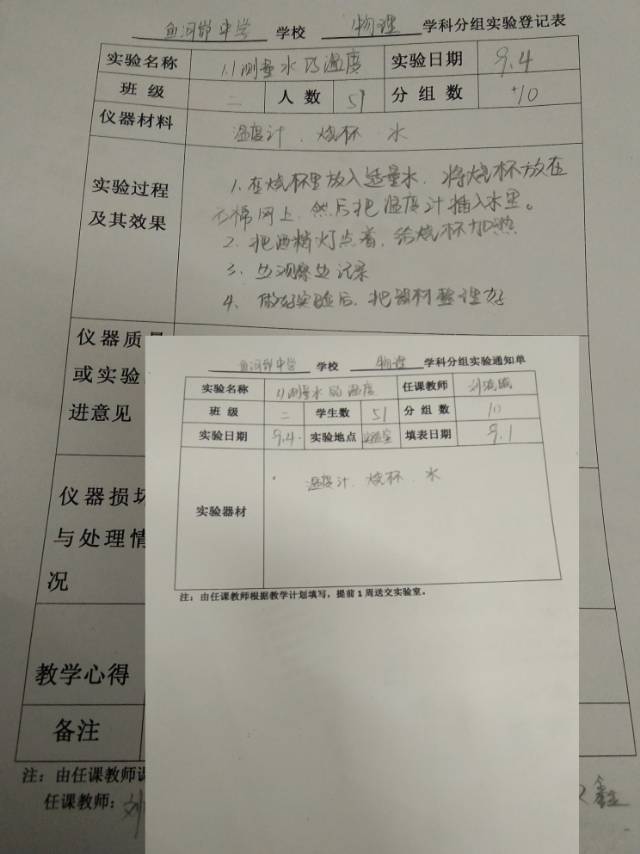 鱼河峁中学 学校 物理 学科分组实验登记表
实验名称 1.1测量水的温度 实验日期 9.4
班级 二 人数 51 分组数 10
仪器材料 温度计 烧杯 水
实验过程及其效果
1.在烧杯里放入适量水，将烧杯放在
石棉网上，然后把温度计插入水里。
2、把酒精灯点着，给烧杯加热
3、边观察边记录
4、做好实验后，把器材整理好
仪器质量
或实验
进意见
仪器损坏
与处理情
况
教学心得
备注
注：由任课教师
任课教师：刘
鑫
鱼河峁中学 学校 物理 学科分组实验通知单
实验名称 1.1测量水的温度 任课教师
班级 二 学生数 51 分组数 10
实验日期 9.4 实验地点 实验室 填表日期 9.1
实验器材 温度计 烧杯 水
注：由任课教师根据教学计划填写，提前1周送交实验室。